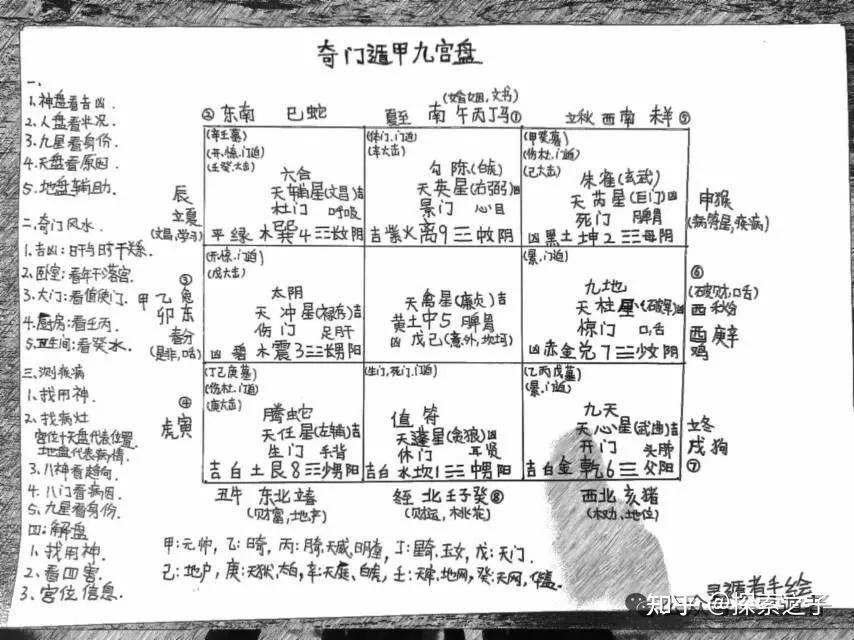 奇门遁甲九宫盘
一、
1.神盘看吉凶.
2.人盘看状况.
3.九星看身份.
4.天盘看原因.
5.地盘辅助.
二.奇门风水.
1.吉凶:日干与时干关系.
2.卧室:看年干落宫.
3.大门:看值使门.
4.厨房:看壬丙.
5.卫生间:看癸水.
三.测疾病
1.找用神.
2.找病灶
宫位十天盘代表位置.
地盘代表病情.
3.八神看趋向.
4.八门看病因.
5.九星看身份.
四:解盘
1.找用神.
2.看四害.
3.宫位信息.
② 东南 巳蛇
辰
立夏
(文昌,学习)
(辛壬墓)
(开,惊,门迫)
(壬癸.大击)
六合
天辅星(文昌)吉
杜门 呼吸
平 绿 木 巽4 长女 阴
(婚姻,文书)
夏至 南 午丙丁马①
(休门,门迫)
(辛大击)
勾陈(白虎)
天英星(右弼)凶
景门 心目
吉紫火离9 中女 阴
立秋 西南 未羊⑤
申猴
(病符星,疾病)
(甲癸墓)
(伤杜,门迫)
(己大击)
朱雀(玄武)
天芮星(巨门)凶
死门 脾胃
凶黑土坤2 母阴
③
甲乙兔
卯东
春分
(是非,口舌)
(开,惊,门迫)
(戊大击)
太阴
天冲星(禄存)吉
伤门 足肝
凶 碧 木震3 长男 阳
天禽星(廉贞)吉
黄土中5 脾胃
凶 戊己(意外,坎坷)
⑥
(破财,口舌)
西 秋分
酉 庚辛
鸡
(景,门迫)
九地
天柱星(破军)凶
惊门 口舌
凶赤金兑7 少女 阴
④
虎寅
(丁己庚墓)
(伤杜,门迫)
(庚大击)
腾蛇
天任星(左辅)吉
生门 手背
吉白土艮8 少男阳
丑牛 东北 立春
(财富,地产)
(生门,死门,门迫)
值符
天蓬星(贪狼)凶
休门 耳肾
吉白水坎1 中男阳
冬至 北 壬子癸⑧
(财运,桃花)
(乙丙戊墓)
(景,门迫)
九天
天心星(武曲)吉
开门 头肺
吉白金乾6 父阳
立冬
戌狗
⑦
西北 亥猪
(权力、地位)
甲:元帅,乙:日奇,丙:月奇,天威,明堂,丁:星奇,玉女,戊:天门.
己:地户,庚:天狱,太白,辛:天庭,白虎,壬:天牢,地网,癸:天网,华盖.
遁者手绘
知乎 @探索之子